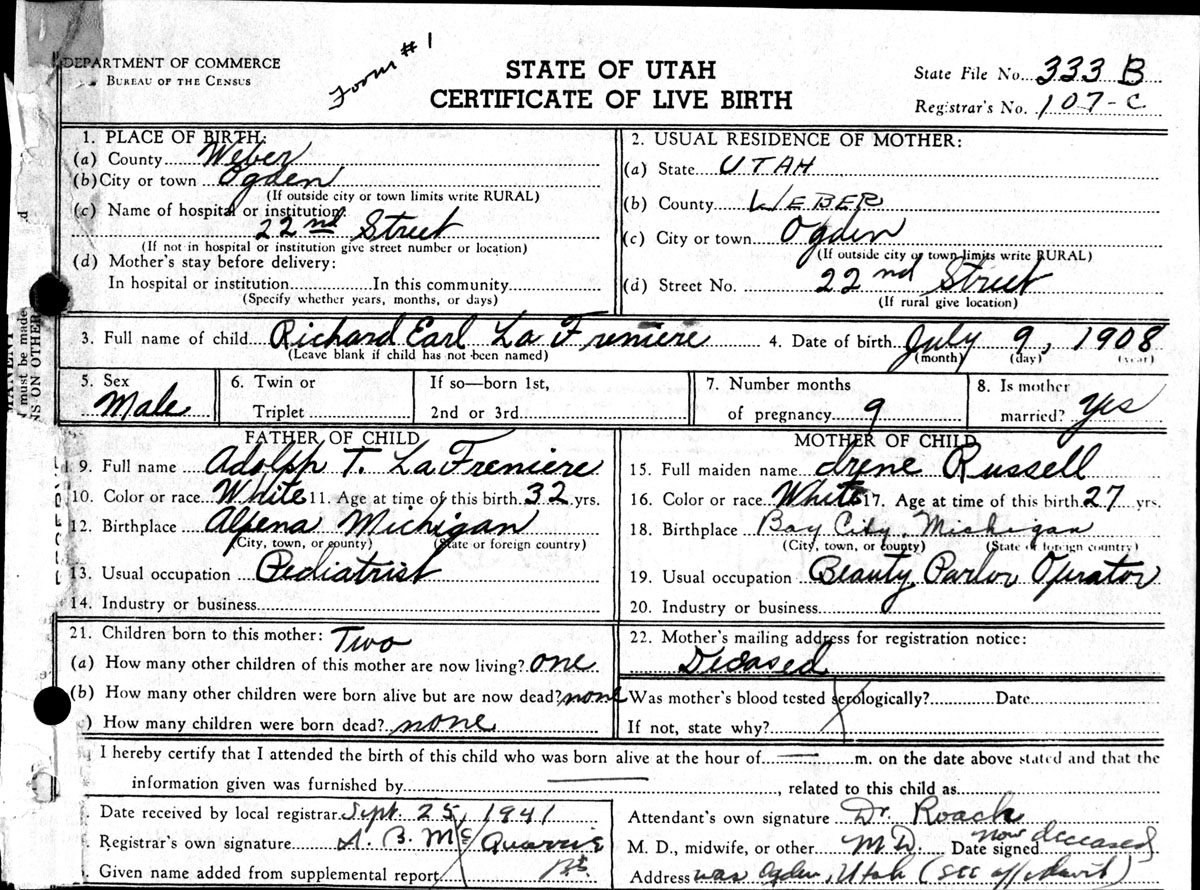 Form # 1
DEPARTMENT OF COMMERCE
BUREAU OF THE CENSUS
STATE OF UTAH
CERTIFICATE OF LIVE BIRTH
State File No. 333 B
Registrar's No. 107-C
1. PLACE OF BIRTH:
(a) County Weber
(b) City or town Ogden
(If outside city or town limits write RURAL)
(c) Name of hospital or institution:
22nd Street
(If not in hospital or institution give street number or location)
(d) Mother's stay before delivery:
In hospital or institution In this community
(Specify whether years, months, or days)
2. USUAL RESIDENCE OF MOTHER:
(a) State UTAH
(b) County WEBER
(c) City or town Ogden
(If outside city or town limits write RURAL)
(d) Street No. 22nd Street
(If rural give location)
d
MANENT
must be made
NS ON OTHER
3. Full name of child Richard Earl La Freniere
(Leave blank if child has not been named)
4. Date of birth July 9, 1908
(month) (day) (year)
5. Sex
Male
6. Twin or
Triplet
If so—born 1st,
2nd or 3rd
7. Number months
of pregnancy 9
8. Is mother
married? Yes
FATHER OF CHILD
9. Full name Adolph T. La Freniere
10. Color or race White 11. Age at time of this birth 32 yrs.
12. Birthplace Alpena Michigan
(City, town, or county) (State or foreign country)
13. Usual occupation Pediatrist
14. Industry or business
MOTHER OF CHILD
15. Full maiden name Irene Russell
16. Color or race White 17. Age at time of this birth 27 yrs.
18. Birthplace Bay City, Michigan
(City, town, or county) (State or foreign country)
19. Usual occupation Beauty Parlor Oprator
20. Industry or business
21. Children born to this mother: Two
(a) How many other children of this mother are now living? one
(b) How many other children were born alive but are now dead? none
) How many children were born dead? none
22. Mother's mailing address for registration notice:
Decased
Was mother's blood tested serologically? Date
If not, state why?
I hereby certify that I attended the birth of this child who was born alive at the hour of m. on the date above stated and that the
information given was furnished by , related to this child as
Date received by local registrar Sept. 25, 1941
Registrar's own signature A. B. Mc
Given name added from supplemental report
Attendant's own signature Dr. Roach
M. D., midwife, or other M.D. Date signed now deceased
Address was Ogden, Utah (see affidavit)